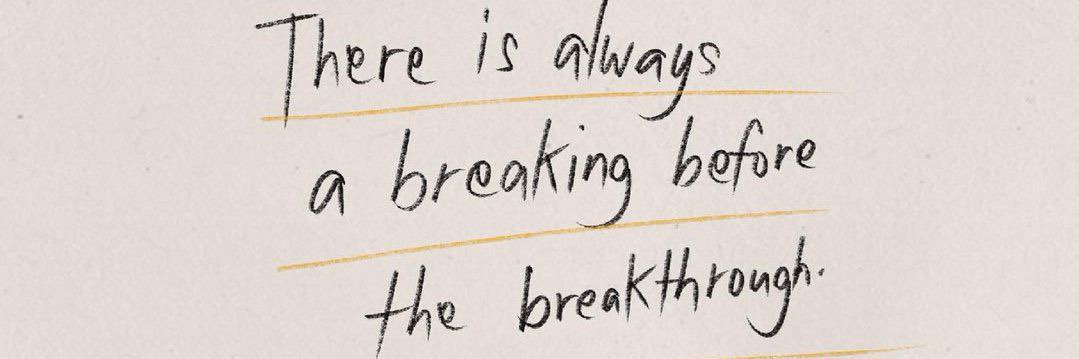 There is always
a breaking before
the breakthrough.